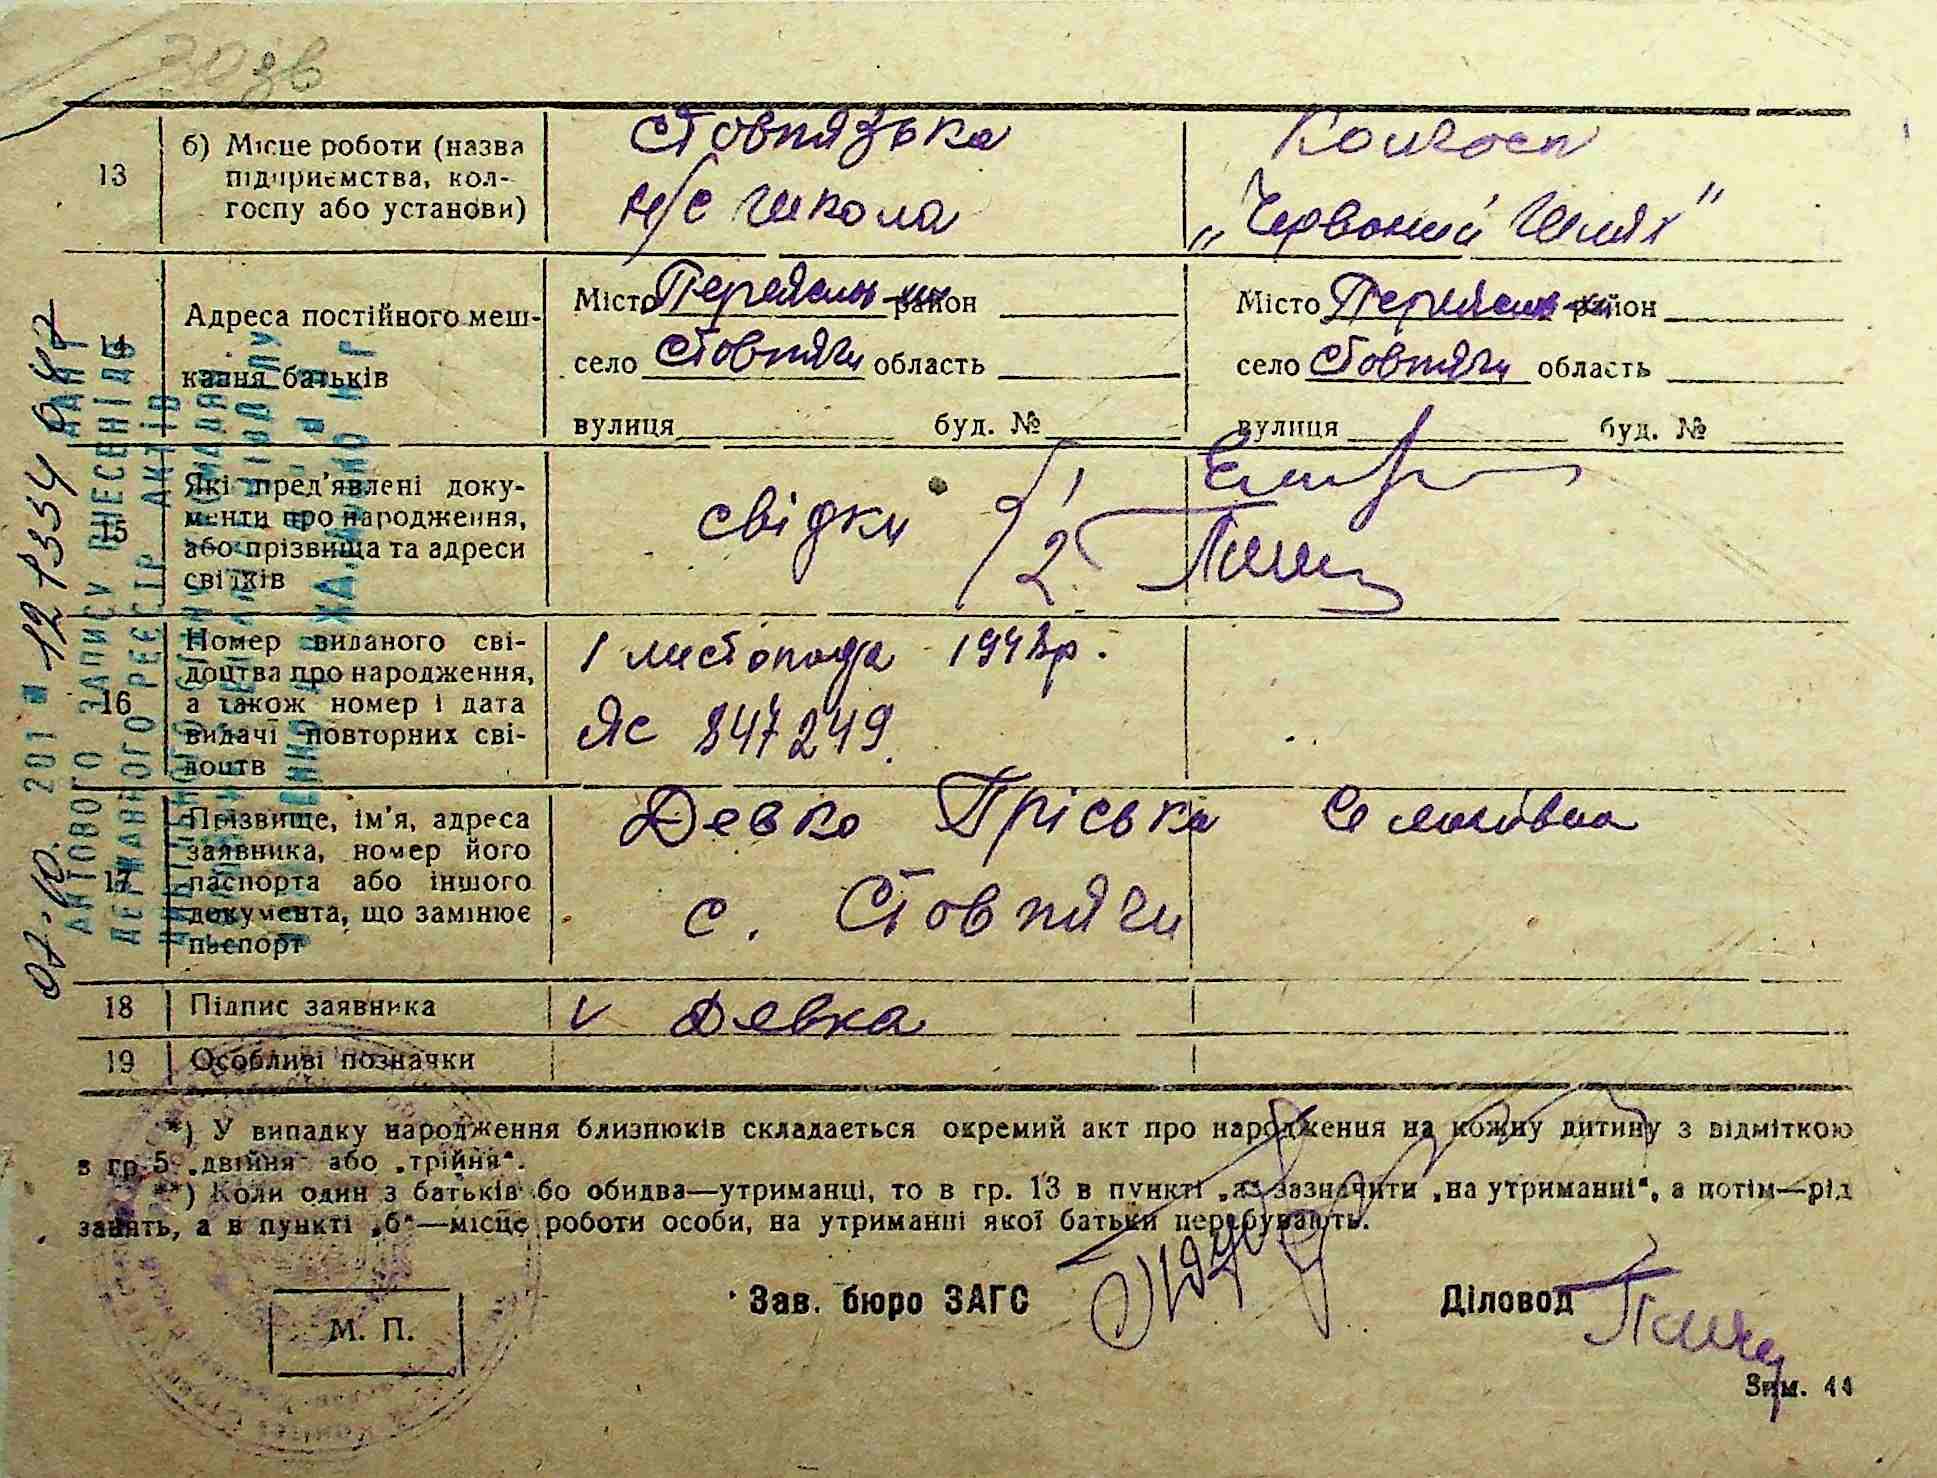 13
б) Місце роботи (назва
підприємства, кол-
госпу або установи)
Стовпязька
н/с школа
Колгосп
„Червоний Шлях"
14
Адреса постійного меш-
кання батьків
Місто Переяслів район
село Стовпяги область
вулиця буд. №
Місто Переяслів район
село Стовпяги область
вулиця буд. №
15
Які пред'явлені доку-
менти про народження,
або прізвища та адреси
свідків
свідки 1
2
16
Номер виданого сві-
доцтва про народження,
а також номер і дата
видачі повторних сві-
доцтв
1 листопада 1943р.
ЯС 847249
17
Прізвище, ім'я, адреса
заявника, номер його
паспорта або іншого
документа, що замінює
паспорт
Девко Пріська
с. Стовпяги
18
Підпис заявника
V Девка
19
Особливі позначки
*) У випадку народження близнюків складається окремий акт про народження на кожну дитину з відміткою
в гр. 5 „двійня" або „трійня".
**) Коли один з батьків бо обидва—утриманці, то в гр. 13 в пункті „а" зазначити „на утриманні", а потім—рід
занять, а в пункті „б"—місце роботи особи, на утриманні якої батьки перебувають.
Зав. бюро ЗАГС
Діловод
М. П.
Зам. 44
АКТОВОГО ЗАПИСУ ВНЕСЕНІ ДО
ДЕРЖАВНОГО РЕЄСТР АКТІВ